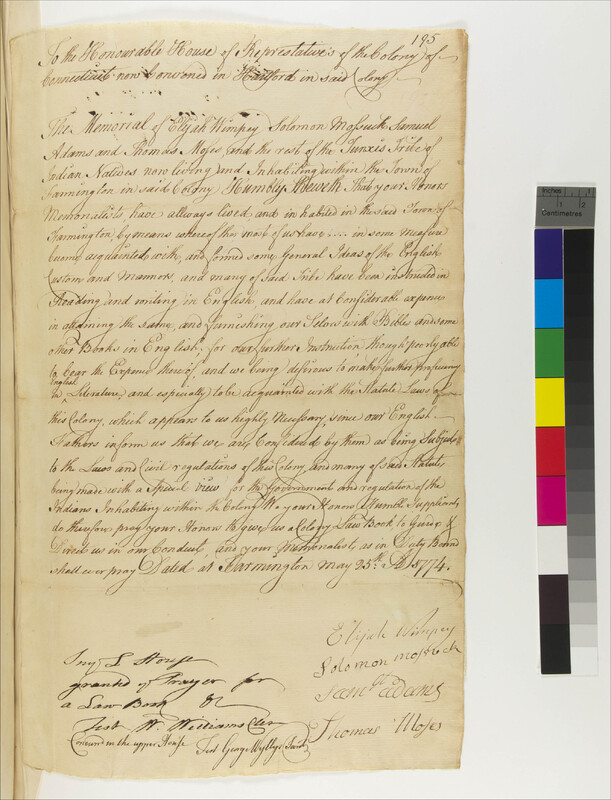 195
To the Honourable House of Represtatives of the Colony of
Connecticut now Convened in Hartford in said Colony
The Memorial of Elijah Wimpey Solomon Mossuck Samuel
Adams and Thomas Moses and the rest of the Tunxis Tribe of
Indian Natives now living and Inhabiting within the Town of
Farmington in said Colony Humbly Sheweth That your Honors
Memorialists have allways lived and inhabited in the said Town of
Farmington by means whereof the most of us have in some Measure
become acquainted with, and formed some General Ideas of the English
Custom and Manners, and many of said Tribe have been instructed in
Reading and writing in English, and have at Considerable expence
in attaining the same, and furnishing our Selves with Bibles and some
other Books in English, for our further Instruction though poorly able
to bear the Expence thereof and we being desirous to make further proficiency
in English Literature, and especially to be acquainted with the Statute Laws of
this Colony, which appears to us highly Necessary, since our English
Fathers inform us that we are Considered by them as being Subjects
to the Laws and Civil regulations of this Colony, and many of said Statutes
being made with a Special view for the Government and regulation of the
Indians Inhabiting within the Colony We your Honors Humble Suppliants
do therefore pray your Honors to give us a Colony Law Book to Guide &
Direct us in our Conduct, and your Memorialists as in Duty Bound
shall ever pray Dated at Farmington May 25th AD 1774.
Elijah Wimpey
Solomon mossock
Samll adams
Thomas Moses
In ye L House
granted ye Prayer for
a Law Book &c
Test W. Williams Cler
Concurd in the upper House
Test George Wyllys Secret
Inches 1
Centimetres 1 2